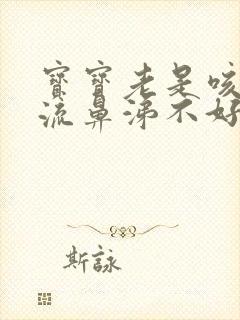 寶寶老是咳
流鼻涕不好
斯詠